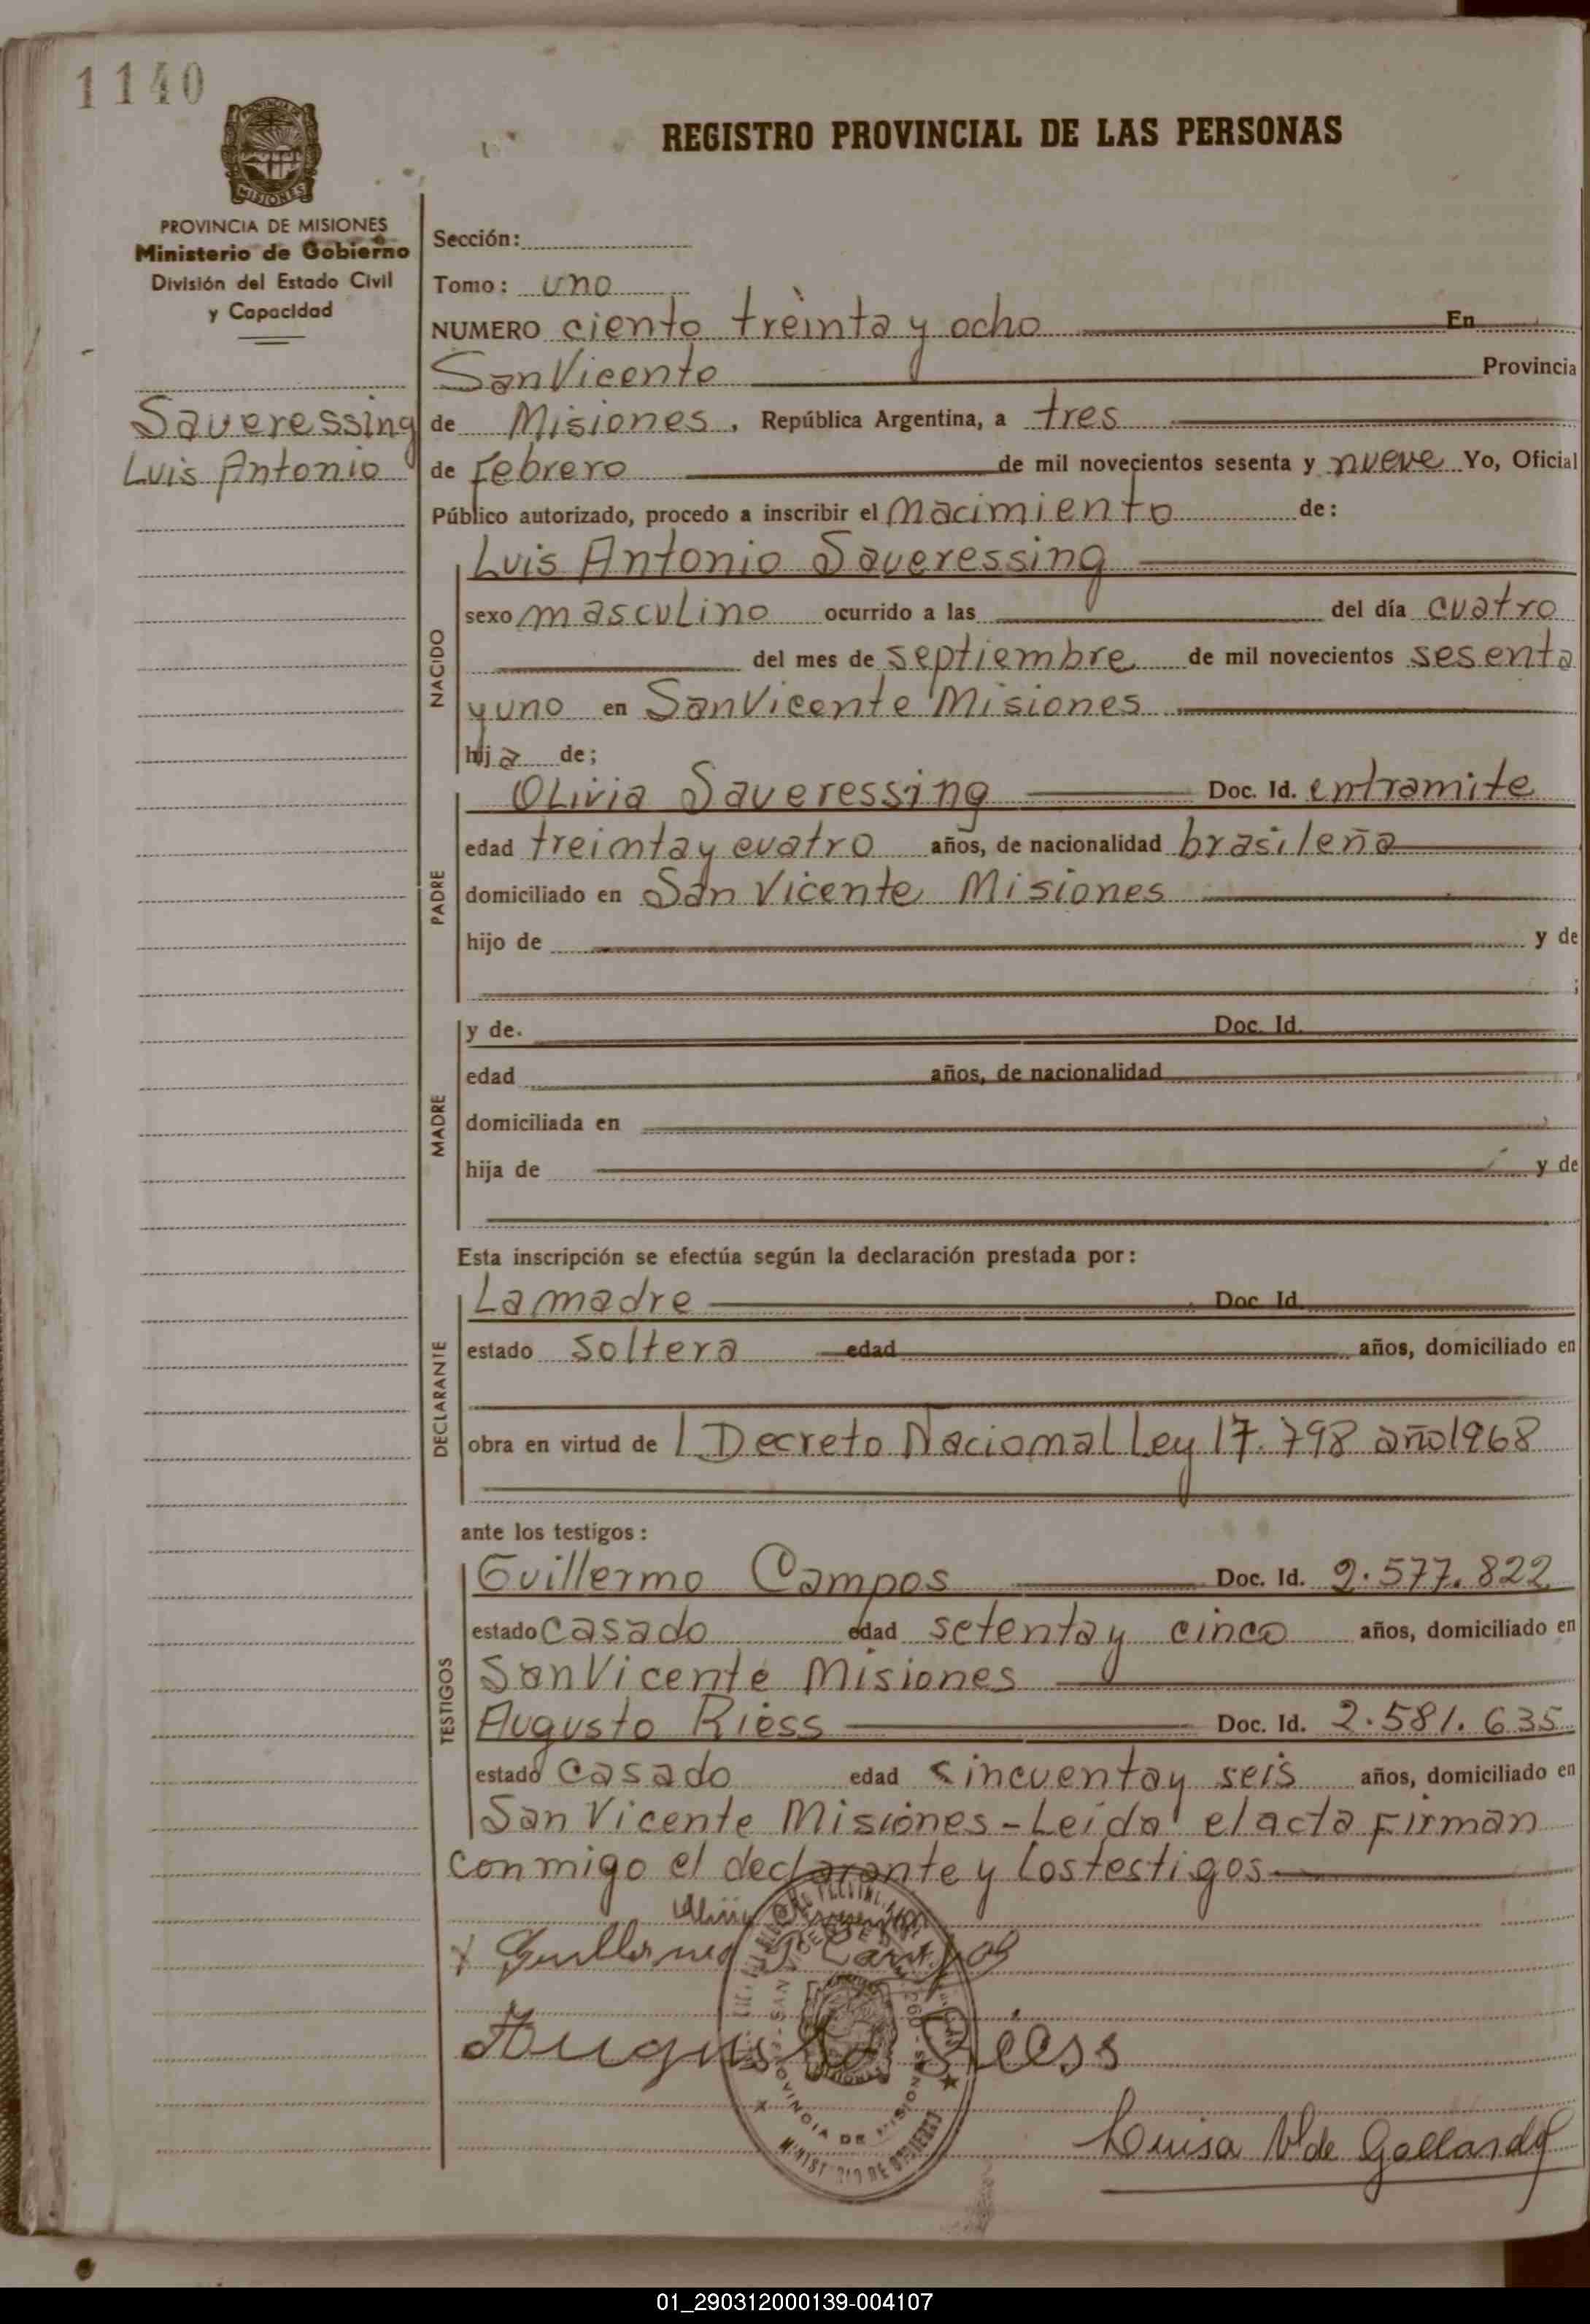 1140
MISIONES
PROVINCIA DE MISIONES
Ministerio de Gobierno
División del Estado Civil
y Capacidad
Saveressing
Luis Antonio
REGISTRO PROVINCIAL DE LAS PERSONAS
Sección:
Tomo: uno
NUMERO ciento treinta y ocho En
San Vicente Provincia
de Misiones, República Argentina, a tres
de Febrero de mil novecientos sesenta y nueve Yo, Oficial
Público autorizado, procedo a inscribir el nacimiento de:
NACIDO
Luis Antonio Saveressing
sexo masculino ocurrido a las del día cuatro
del mes de septiembre de mil novecientos sesenta
y uno en San Vicente Misiones
hija de;
PADRE
Olivia Saveressing Doc. Id. en tramite
edad treinta y cuatro años, de nacionalidad brasileña
domiciliado en San Vicente Misiones
hijo de y de
;
MADRE
y de. Doc. Id.
edad años, de nacionalidad
domiciliada en
hija de y de
Esta inscripción se efectúa según la declaración prestada por:
DECLARANTE
La madre Doc. Id.
estado soltera edad años, domiciliado en
obra en virtud de l Decreto Nacional Ley 17.798 año 1968
ante los testigos:
TESTIGOS
Guillermo Campos Doc. Id. 2.577.822
estado casado edad setenta y cinco años, domiciliado en
San Vicente Misiones
Augusto Riess Doc. Id. 2.581.635
estado casado edad sincuenta y seis años, domiciliado en
San Vicente Misiones - Leida el acta Firman
conmigo el declarante y los testigos
Guillermo Campos
Augusto Riess
PROVINCIA DE MISIONES
MINISTERIO DE GOBIERNO
Luisa V de Gallardo
01_290312000139-004107